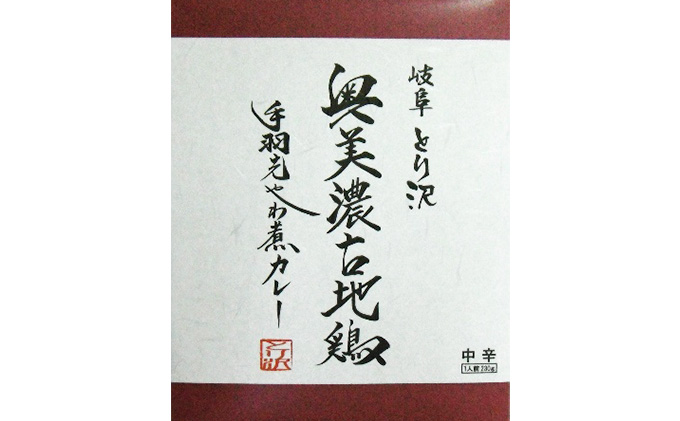 岐阜 とり沢
奥美濃古地鶏
手羽先やわ煮カレー
とり沢
中辛
1人前230g